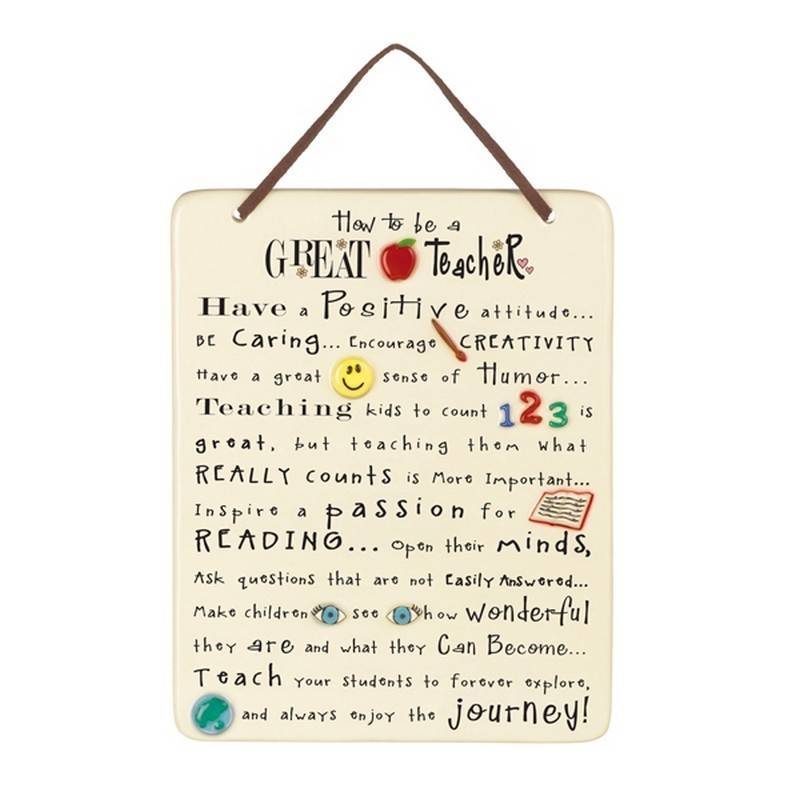 How to be a
GREAT TeacheR
Have a PosiTive attitude...
BE Caring... Encourage CREATIVITY
Have a great sense of Humor...
Teaching kids to count 123 is
great, but teaching them what
REALLY counts is More Important...
Inspire a passion for
READING... Open their minds,
Ask questions that are not Easily Answered...
Make children see how wonderful
they are and what they Can Become...
Teach your students to forever explore,
and always enjoy the journey!